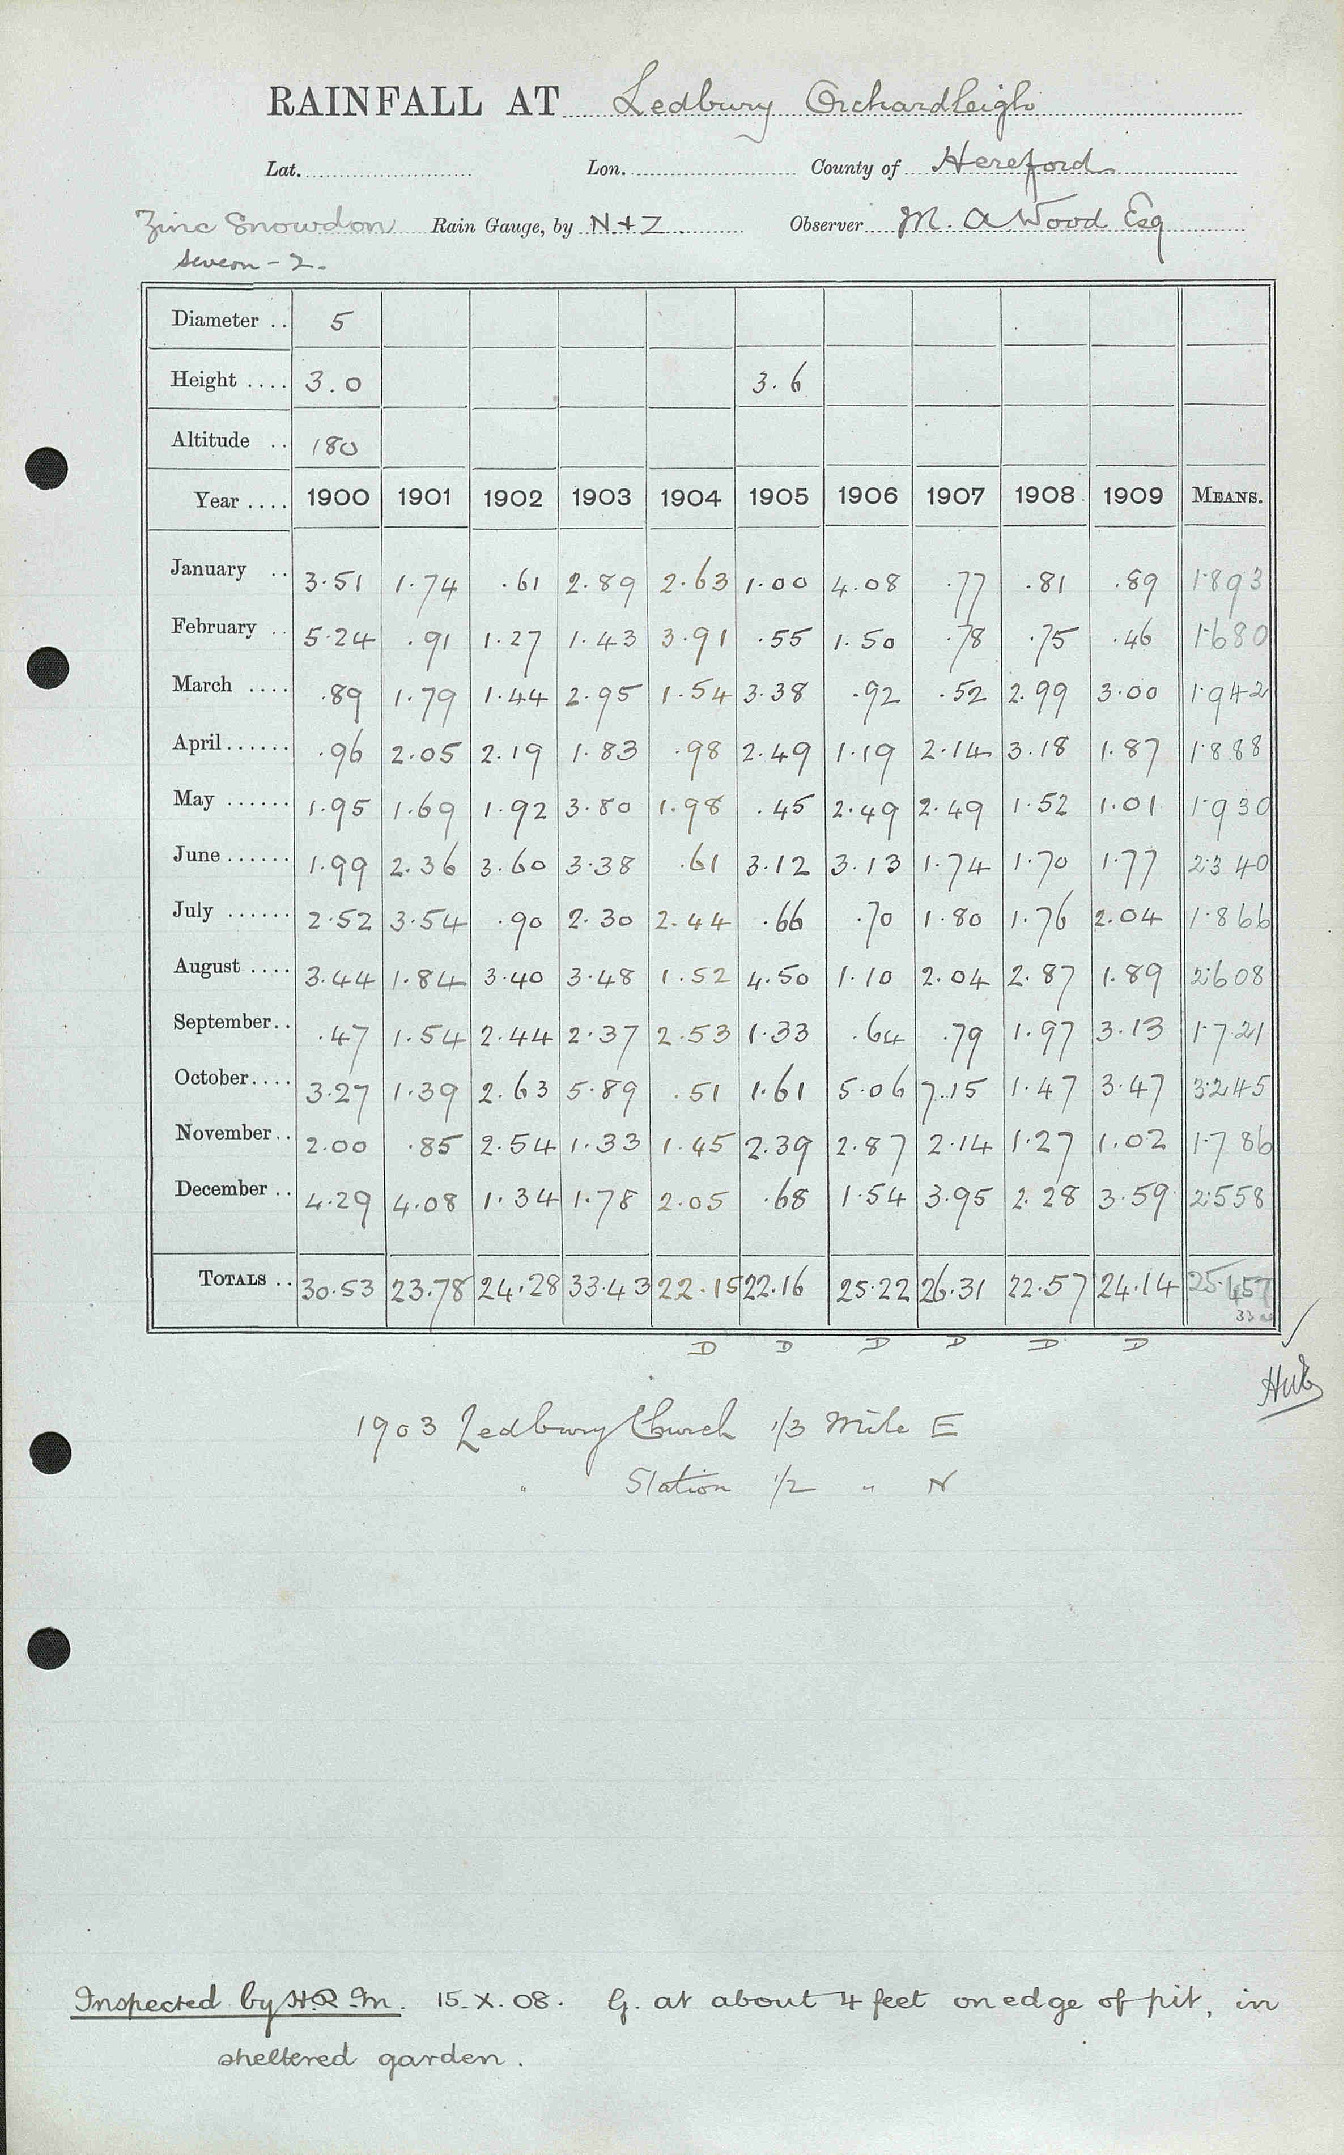 RAINFALL AT Ledbury Orchardleigh
Lat. Lon. County of Hereford
Zinc Snowdon Rain Gauge, by N+Z Observer M. A Wood Esq
Diameter .. 5
Height .... 3.0 3.6
Altitude .. 180
Year .... 1900 1901 1902 1903 1904 1905 1906 1907 1908 1909 MEANS.
January .. 3.51 1.74 .61 2.89 2.63 1.00 4.08 .77 .81 .89 1.893
February .. 5.24 .91 1.27 1.43 3.91 .55 1.50 .78 .75 .46 1.680
March .... .89 1.79 1.44 2.95 1.54 3.38 .92 .52 2.99 3.00 1.942
April...... .96 2.05 2.19 1.83 .98 2.49 1.19 2.14 3.18 1.87 1.888
May ...... 1.95 1.69 1.92 3.80 1.98 .45 2.49 2.49 1.52 1.01 1.930
June ...... 1.99 2.36 3.60 3.38 .61 3.12 3.13 1.74 1.70 1.77 2.340
July ...... 2.52 3.54 .90 2.30 2.44 .66 .70 1.80 1.76 2.04 1.866
August .... 3.44 1.84 3.40 3.48 1.52 4.50 1.10 2.04 2.87 1.89 2.608
September.. .47 1.54 2.44 2.37 2.53 1.33 .64 .79 1.97 3.13 1.721
October.... 3.27 1.39 2.63 5.89 .51 1.61 5.06 7.15 1.47 3.47 3.245
November.. 2.00 .85 2.54 1.33 1.45 2.39 2.87 2.14 1.27 1.02 1.786
December .. 4.29 4.08 1.34 1.78 2.05 .68 1.54 3.95 2.28 3.59 2.558
TOTALS .. 30.53 23.78 24.28 33.43 22.15 22.16 25.22 26.31 22.57 24.14 25.457
D D D D D D
1903 Ledbury Church 1/3 Mile E
" Station 1/2 " N
Inspected by H.R.M. 15.X.08. G. at about 4 feet on edge of pit, in
sheltered garden.